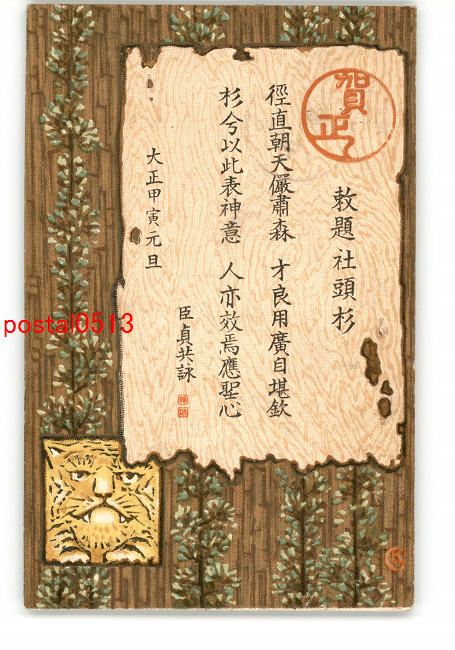 賀正
敕題社頭杉
徑直朝天儼肅森 才良用廣自堪欽
杉兮以此表神意 人亦效焉應聖心
大正甲寅元旦
臣貞共詠
postal0513